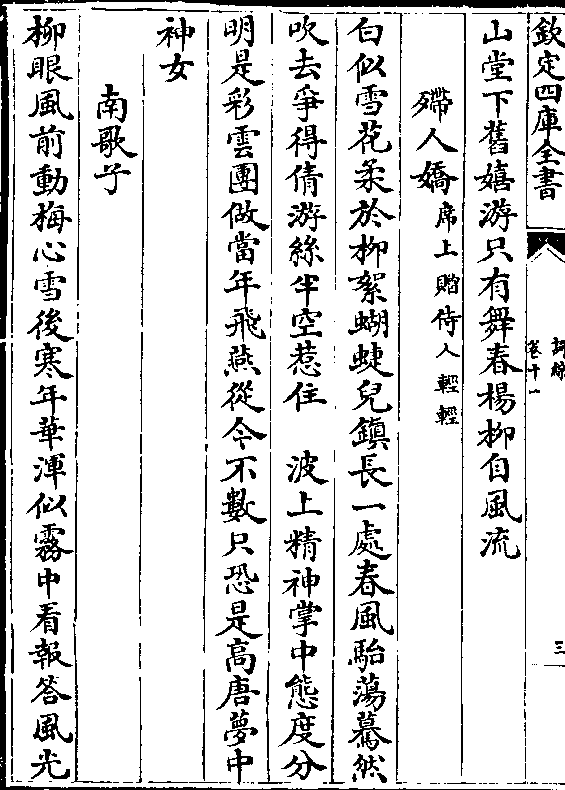 欽定四庫全書
詞綜
卷十一
三
山堂下舊嬉游只有舞春楊柳自風流
殢人嬌席上贈侍人輕輕
白似雪花柔於柳絮蝴蜨兒鎮長一處春風駘蕩驀然
吹去爭得倩游絲半空惹住　波上精神掌中態度分
明是彩雲團做當年飛燕從今不數只恐是高唐夢中
神女
南歌子
柳眼風前動梅心雪後寒年華渾似霧中看報答風光